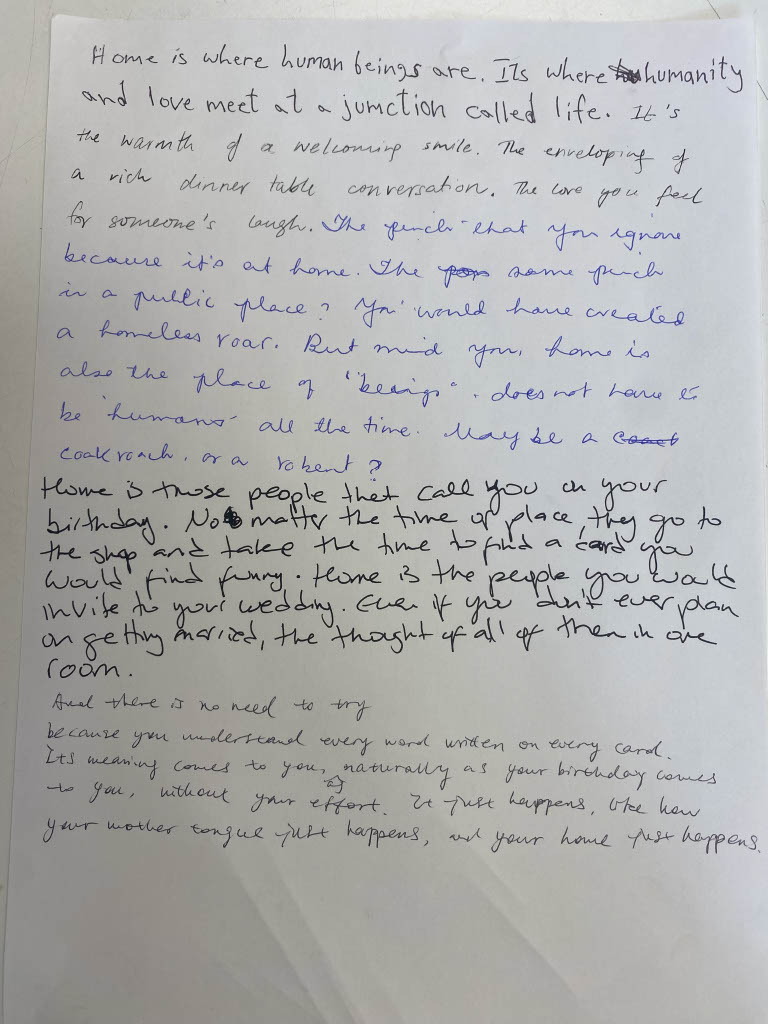 Home is where human beings are. Its where humanity
and love meet at a jumction called life. It's
the warmth of a welcoming smile. The enveloping of
a rich dinner table conversation. The love you feel
for someone's laugh. The pinch that you ignore
because it's at home. The same pinch
in a public place? You would have created
a homeless roar. But mind you, home is
also the place of "beings". does not have to
be 'humans' all the time. May be a
coakroach, or a robent?
Home is those people that call you on your
birthday. No matter the time or place, they go to
the shop and take the time to find a card you
would find funny. Home is the people you would
invite to your wedding. Even if you don't ever plan
on getting married, the thought of all of them in one
room.
And there is no need to try
because you understand every word written on every card.
Its meaning comes to you, as naturally as your birthday comes
to you, without your effort. It just happens, like how
your mother tongue just happens, and your home just happens.